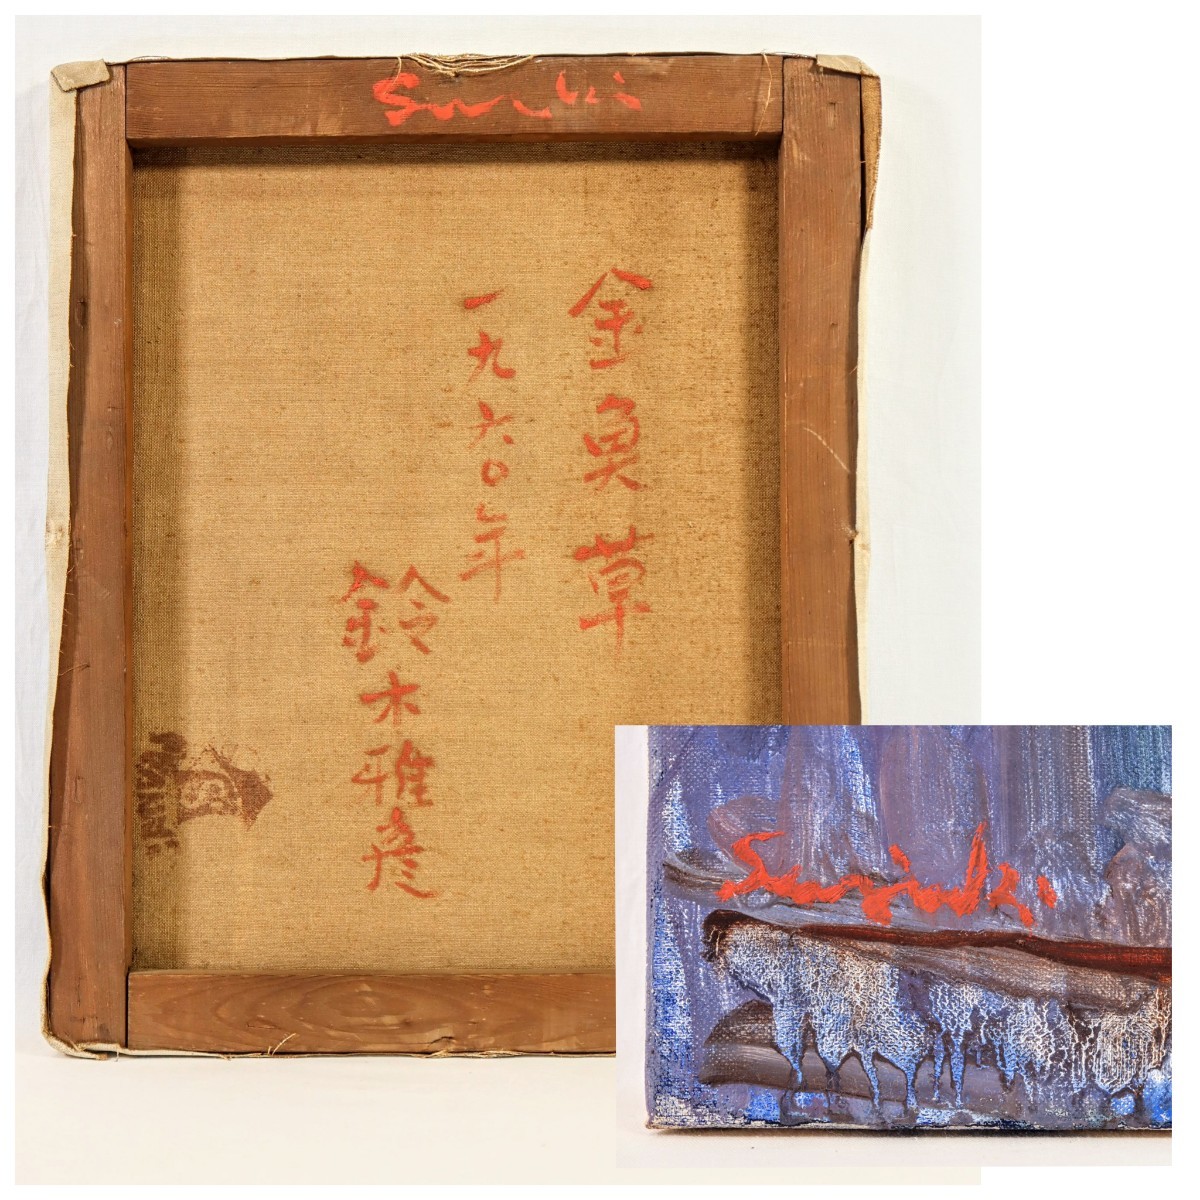 Suzuki
金魚草
一九六〇年
鈴木雅彦
Suzuki